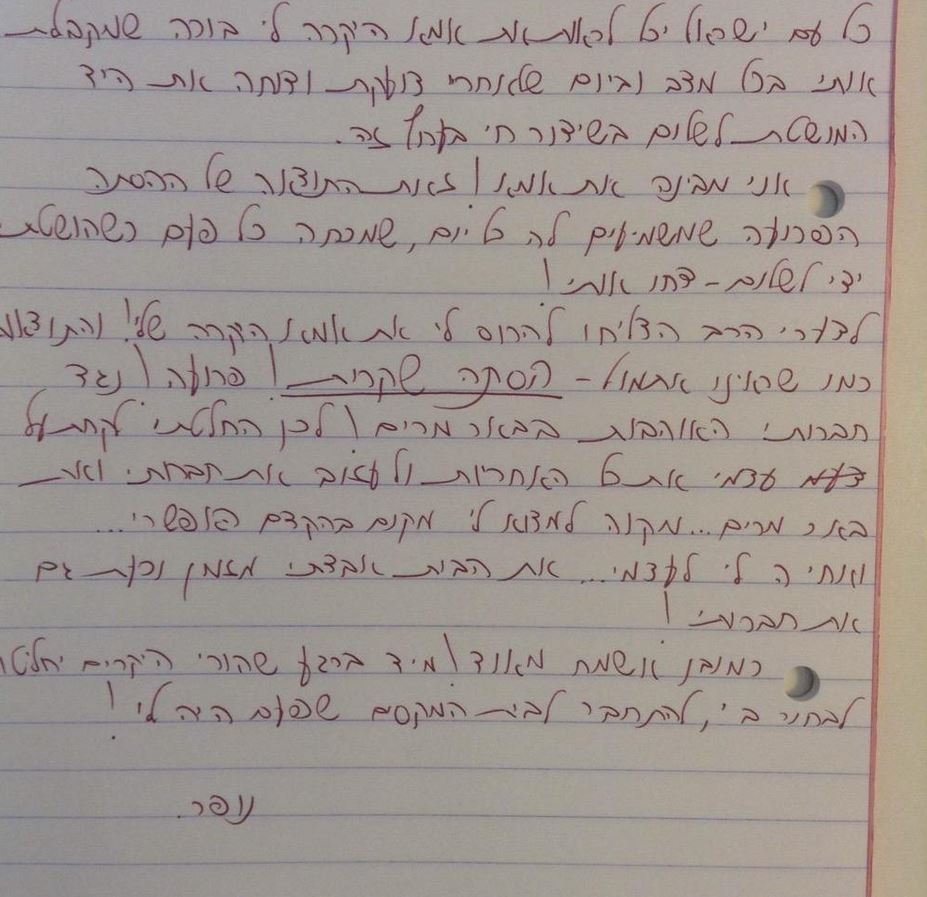 כל עם ישראל יכל לראות את אמא היקרה לי בוכה שמקבלת
אותי בכל מצב וביום שלאחרי צועקת ודוחה את היד
המושטת לשלום בשידור חי בערוץ זה.
אני מבינה את אמא! זאת התוצאה של ההסתה
הפרועה שמשמיעים לה כל יום, שמכתה כל פעם כשהושטת
ידי לשלום - דחו אותי!
לצערי הרב הצליחו להרוס לי את אמא היקרה שלי! והתוצאות
כמו שראינו אתמול - הסתה שקרית! פרועה! נגד
חברותי האוהבות בבאר מרים! לכן החלטתי לקחת על
עצמי את כל האחריות ולעזוב את חברותי ואת
באר מרים... מקוה למצוא לי מקום בהקדם האפשרי...
ואחיה לי לעצמי... את הבית אבדתי מזמן וכעת גם
את חברותי!
כמובן אשמח מאוד! מיד ברגע שהורי היקרים יחליטו
לבחור בי, להתחבר לבית המקסים שפעם היה לי!
נופר.